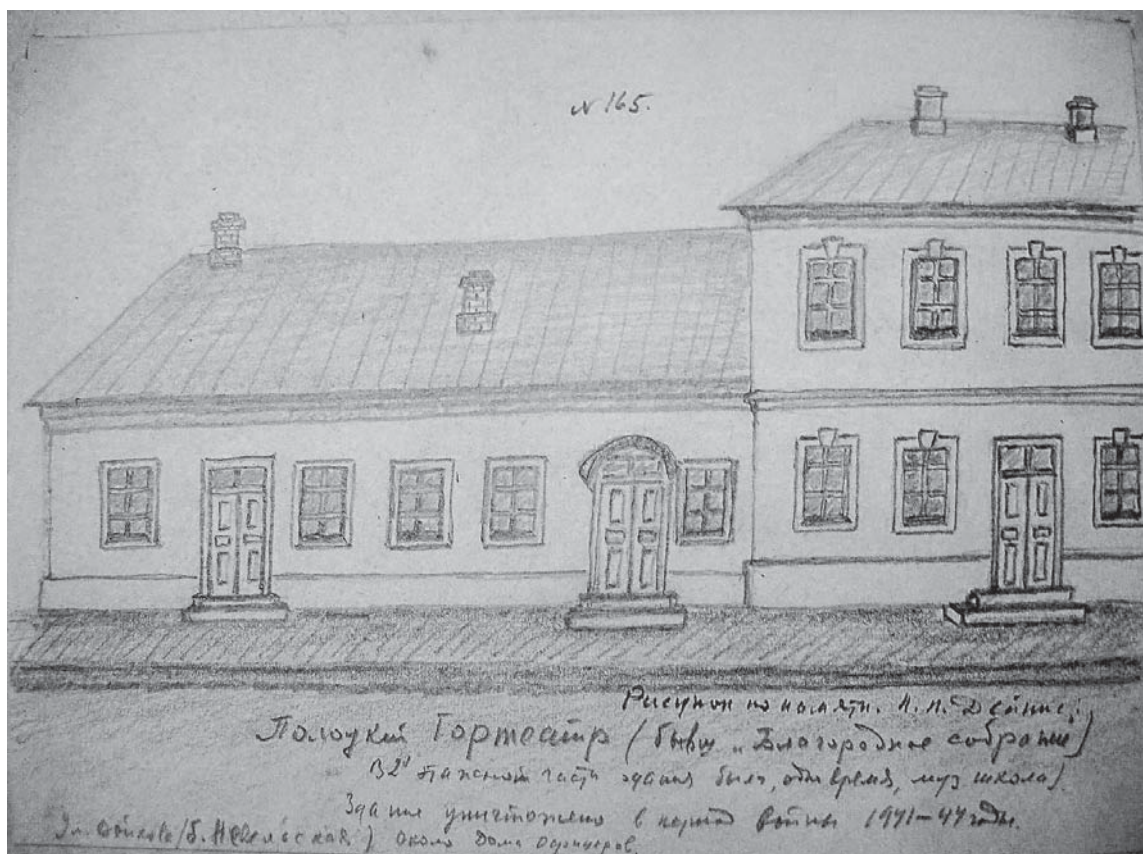 № 165.
Рисунок по памяти. И. П. Дейнис.
Полоцкий Гортеатр (бывш „Благородное собрание)
В 2х этажной части здания была, одно время, муз школа).
Здание уничтожено в период войны 1941–44 годы.
Ул. Войкова (б. Невельская) около Дома офицеров.